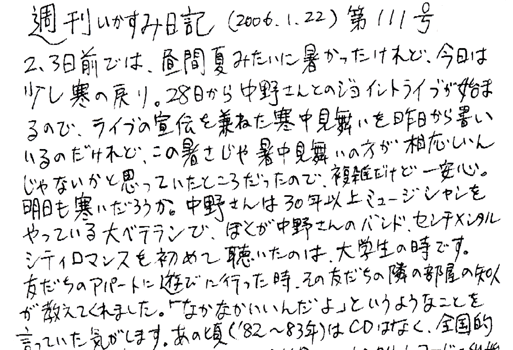 週刊いかすみ日記(2006.1.22)第111号
2、3日前では、昼間夏みたいに暑かったけれど、今日は
少し寒の戻り。28日から中野さんとのジョイントライブが始ま
るので、ライブの宣伝を兼ねた寒中見舞いを昨日から書い
いるのだけれど、この暑さじゃ暑中見舞いの方が相応しいん
じゃないかと思っていたところだったので、複雑だけど一安心。
明日も寒いだろうか。中野さんは30年以上ミュージシャンを
やっている大ベテランで、ぼくが中野さんのバンド、センチメンタル
シティロマンスを初めて聴いたのは、大学生の時です。
友だちのアパートに遊びに行った時、その友だちの隣の部屋の知人
が教えてくれました。「なかなかいいんだよ」というようなことを
言っていた気がします。あの頃('82〜83年)はCDはなく、全国的